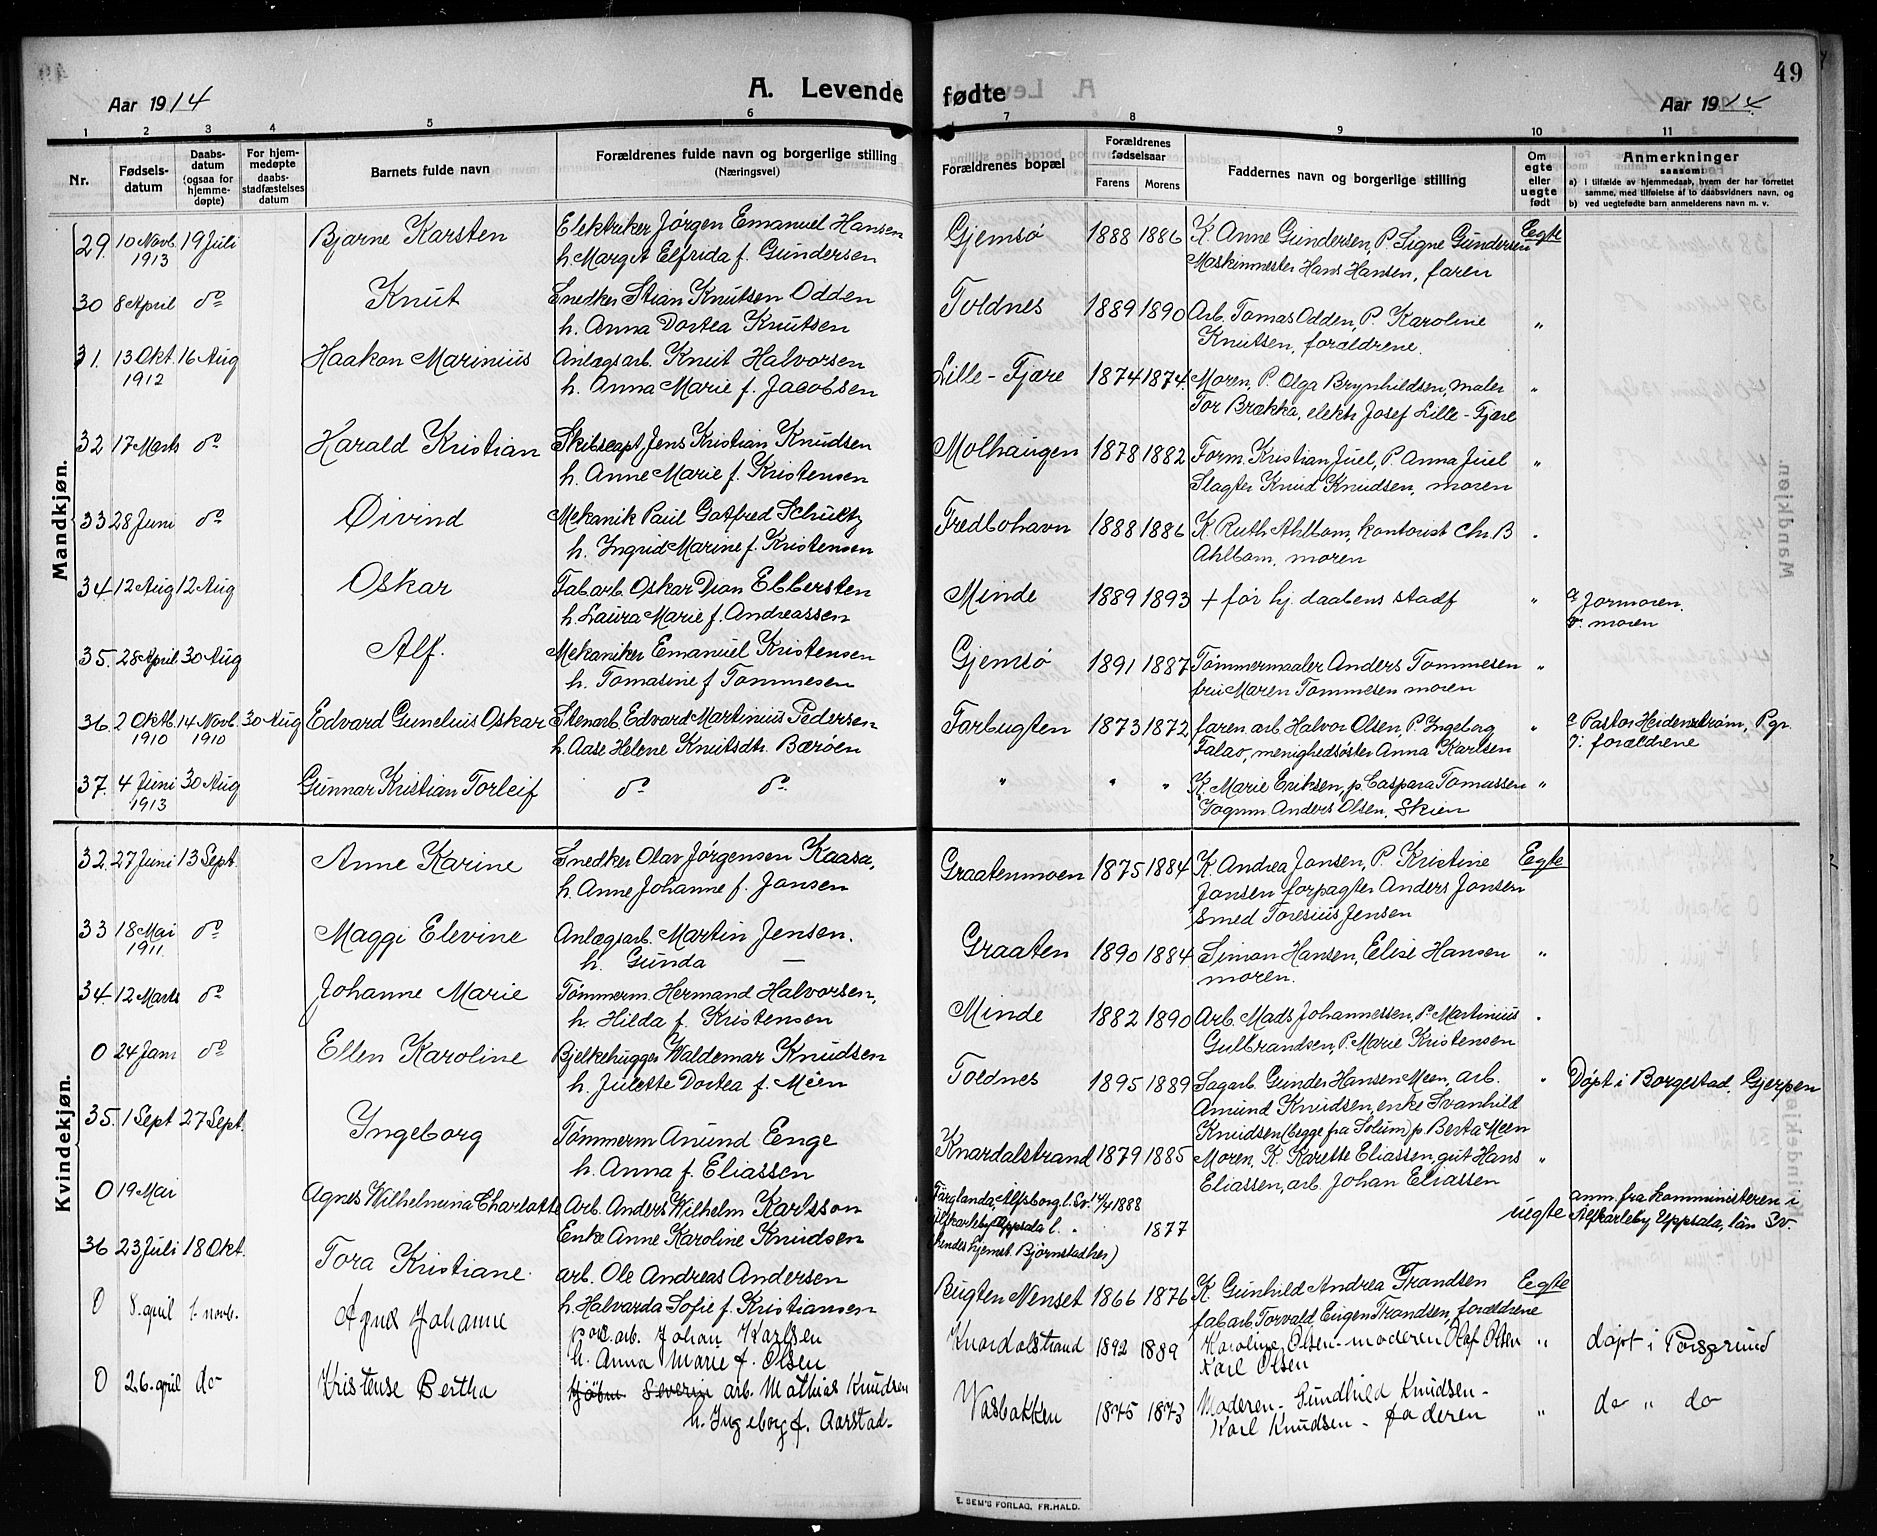 49
Aar 1914
A. Levende fødte
Aar 1914
1 2 3 4 5 6 7 8 9 10 11
Nr.
Fødsels-
datum
Daabs-
datum
(ogsaa for
hjemme-
døpte)
For hjem-
medøpte
daabs-
stadfæstelses
datum
Barnets fulde navn
Forældrenes fulde navn og borgerlige stilling
(Næringsvei)
Forældrenes bopæl
Forældrenes
fødselsaar
Farens Morens
Faddernes navn og borgerlige stilling
Om
egte
eller
uegte
født
Anmerkninger
saasom:
a) i tilfælde av hjemmedaab, hvem der har forrettet
samme, med tilføielse af to daabsvidners navn, og
b) ved uegtefødte barn anmelderens navn m. v.
Mandkjøn.
29. 10 Novb. 19 Juli Bjarne Karsten Elektriker Jørgen Emanuel Hansen Gjemsø 1888 1886 K. Anne Gundersen, P. Signe Gundersen Egte
1913 h. Margit Elfrida f. Gundersen Maskinmester Hans Hansen, faren
30 8 April do Knut Snedker Stian Knutsen Odden Toldnes 1889 1890 Arb. Tomas Odden, P. Karoline "
h. Anna Dortea Knutsen Knutsen, forældrene.
31. 13 Okt. 16 Aug Haakon Marinius Anlægsarb. Knut Halvorsen Lille-Fjære 1874 1874 Moren, P. Olga Brynhildsen, maler "
1912 h. Anna Marie f. Jacobsen Tor Brække, elektr Josef Lille-Fjære
32 17 Marts do Harald Kristian Skibscapt Jens Kristian Knudsen Molhaugen 1878 1882 Form. Kristian Juel, P. Anna Juel "
h. Anne Marie f. Kristensen Slagter Knud Knudsen, moren
33 28 Juni do Øivind Mekanik Paul Gotfred Schultz Fredbohavn 1888 1886 K. Ruth Ahlbom, kontorist Chr. B "
h. Ingrid Marine f. Kristensen Ahlbom, moren
34. 12 Aug 12 Aug Oskar Fabarb. Oskar Dian Ebbersten Minde 1889 1893 + før hj. daabens stadf " a: Jormoren.
h. Laura Marie f. Andreassen moren
35. 28 April 30 Aug Alf. Mekaniker Emanuel Kristensen Gjemsø 1891 1887 Tømmermaaler Anders Tommesen "
h. Tomasine f Tommesen fru Maren Tommesen moren
36. 2 Oktb. 14 Novb. 30 Aug Edvard Gunelius Oskar Stenarb. Edvard Martinius Pedersen Torbugten 1873 1872 faren arb. Halvor Olsen, P. Ingeborg " a: Pastor Heidenstrøm, Pgr.
1910 1910 h. Aase Helene Knutsdtr. Bærøen Falao, menighedsøster Anna Karlsen forældrene
37. 4 Juni 30 Aug Gunnar Kristian Torleif do do " " " K. Marie Eriksen, p. Caspara Tomassen "
1913 Anders Olsen, Skien
Kvindekjøn.
32. 27 Juni 13 Sept. Anne Karine Snedker Olav Jørgensen Kaasa, Graatenmoen 1875 1884 K. Andrea Jansen, P. Kristine Egte
h. Anne Johanne f. Jansen Jansen forpagter Anders Jansen
Smed Toresius Jensen
33 18 Mai do Maggi Elevine Anlægsarb. Martin Jensen. Graaten 1890 1884 Simon Hansen, Elise Hansen "
1911. h. Gunda — moren.
34. 12 Marts do Johanne Marie Tømmerm. Hermand Halvorsen, Minde 1882 1890 Arb. Mads Johannessen, P. Martinius "
h. Hilda f. Kristensen Gulbrandsen, P. Marie Kristensen
0 24 Jan do Ellen Karoline Bjelkehugger Waldemar Knudsen Toldnes 1895 1889 Sagarb. Gunder Hansen Meen, arb. " Døpt i Borgestad, Gjerpen
h. Julette Dortea f. Méen Amund Knudsen, enke Svanhild
Knudsen (begge fra Solum) p. Berta Meen
35. 1 Sept 27 Sept. Ingeborg Tømmerm Anund Eenge Knardalstrand 1879 1885 Moren, K. Karette Eliassen, gut Hans "
h. Anna f. Eliassen Eliassen, arb. Johan Eliassen
0 19 Mai Agnes Wilhelmina Charlotte Arb. Anders Wilhelm Karlsson Färglanda, Älfsborg l. Sv. 14/4 1888 uegte anm. fra komministeren i
Enke Anne Karoline Knudsen Älfkarleby Uppsala l. " 1877 Älfkarleby Uppsala, län Sv.
(hendes hjemst. Bjørnstad her)
36 23 Juli 18 Okt. Tora Kristiane arb. Ole Andreas Andersen Bugten Menset 1866 1876 K. Gunhild Andrea Trandsen Egte
h. Halvarda Sofie f. Kristiansen fabarb. Torvald Eugen Trandsen, forældrene
0 8. april 1. novb. Agnes Johanne arb. Johan Karlsen Knardalstrand 1892 1889 Karoline Olsen - moderen Olaf Olsen " døpt i Porsgrund
h. Anna Marie f. Olsen Karl Olsen
0 26. april do Kristense Bertha Severin arb. Mathias Knudsen Vasbakken 1875 1873 Moderen - Gundhild Knudsen - " do " do
h. Ingeborg f. Aarstad - Karl Knudsen - faderen
E. SEM'S FORLAG, FR.HALD.